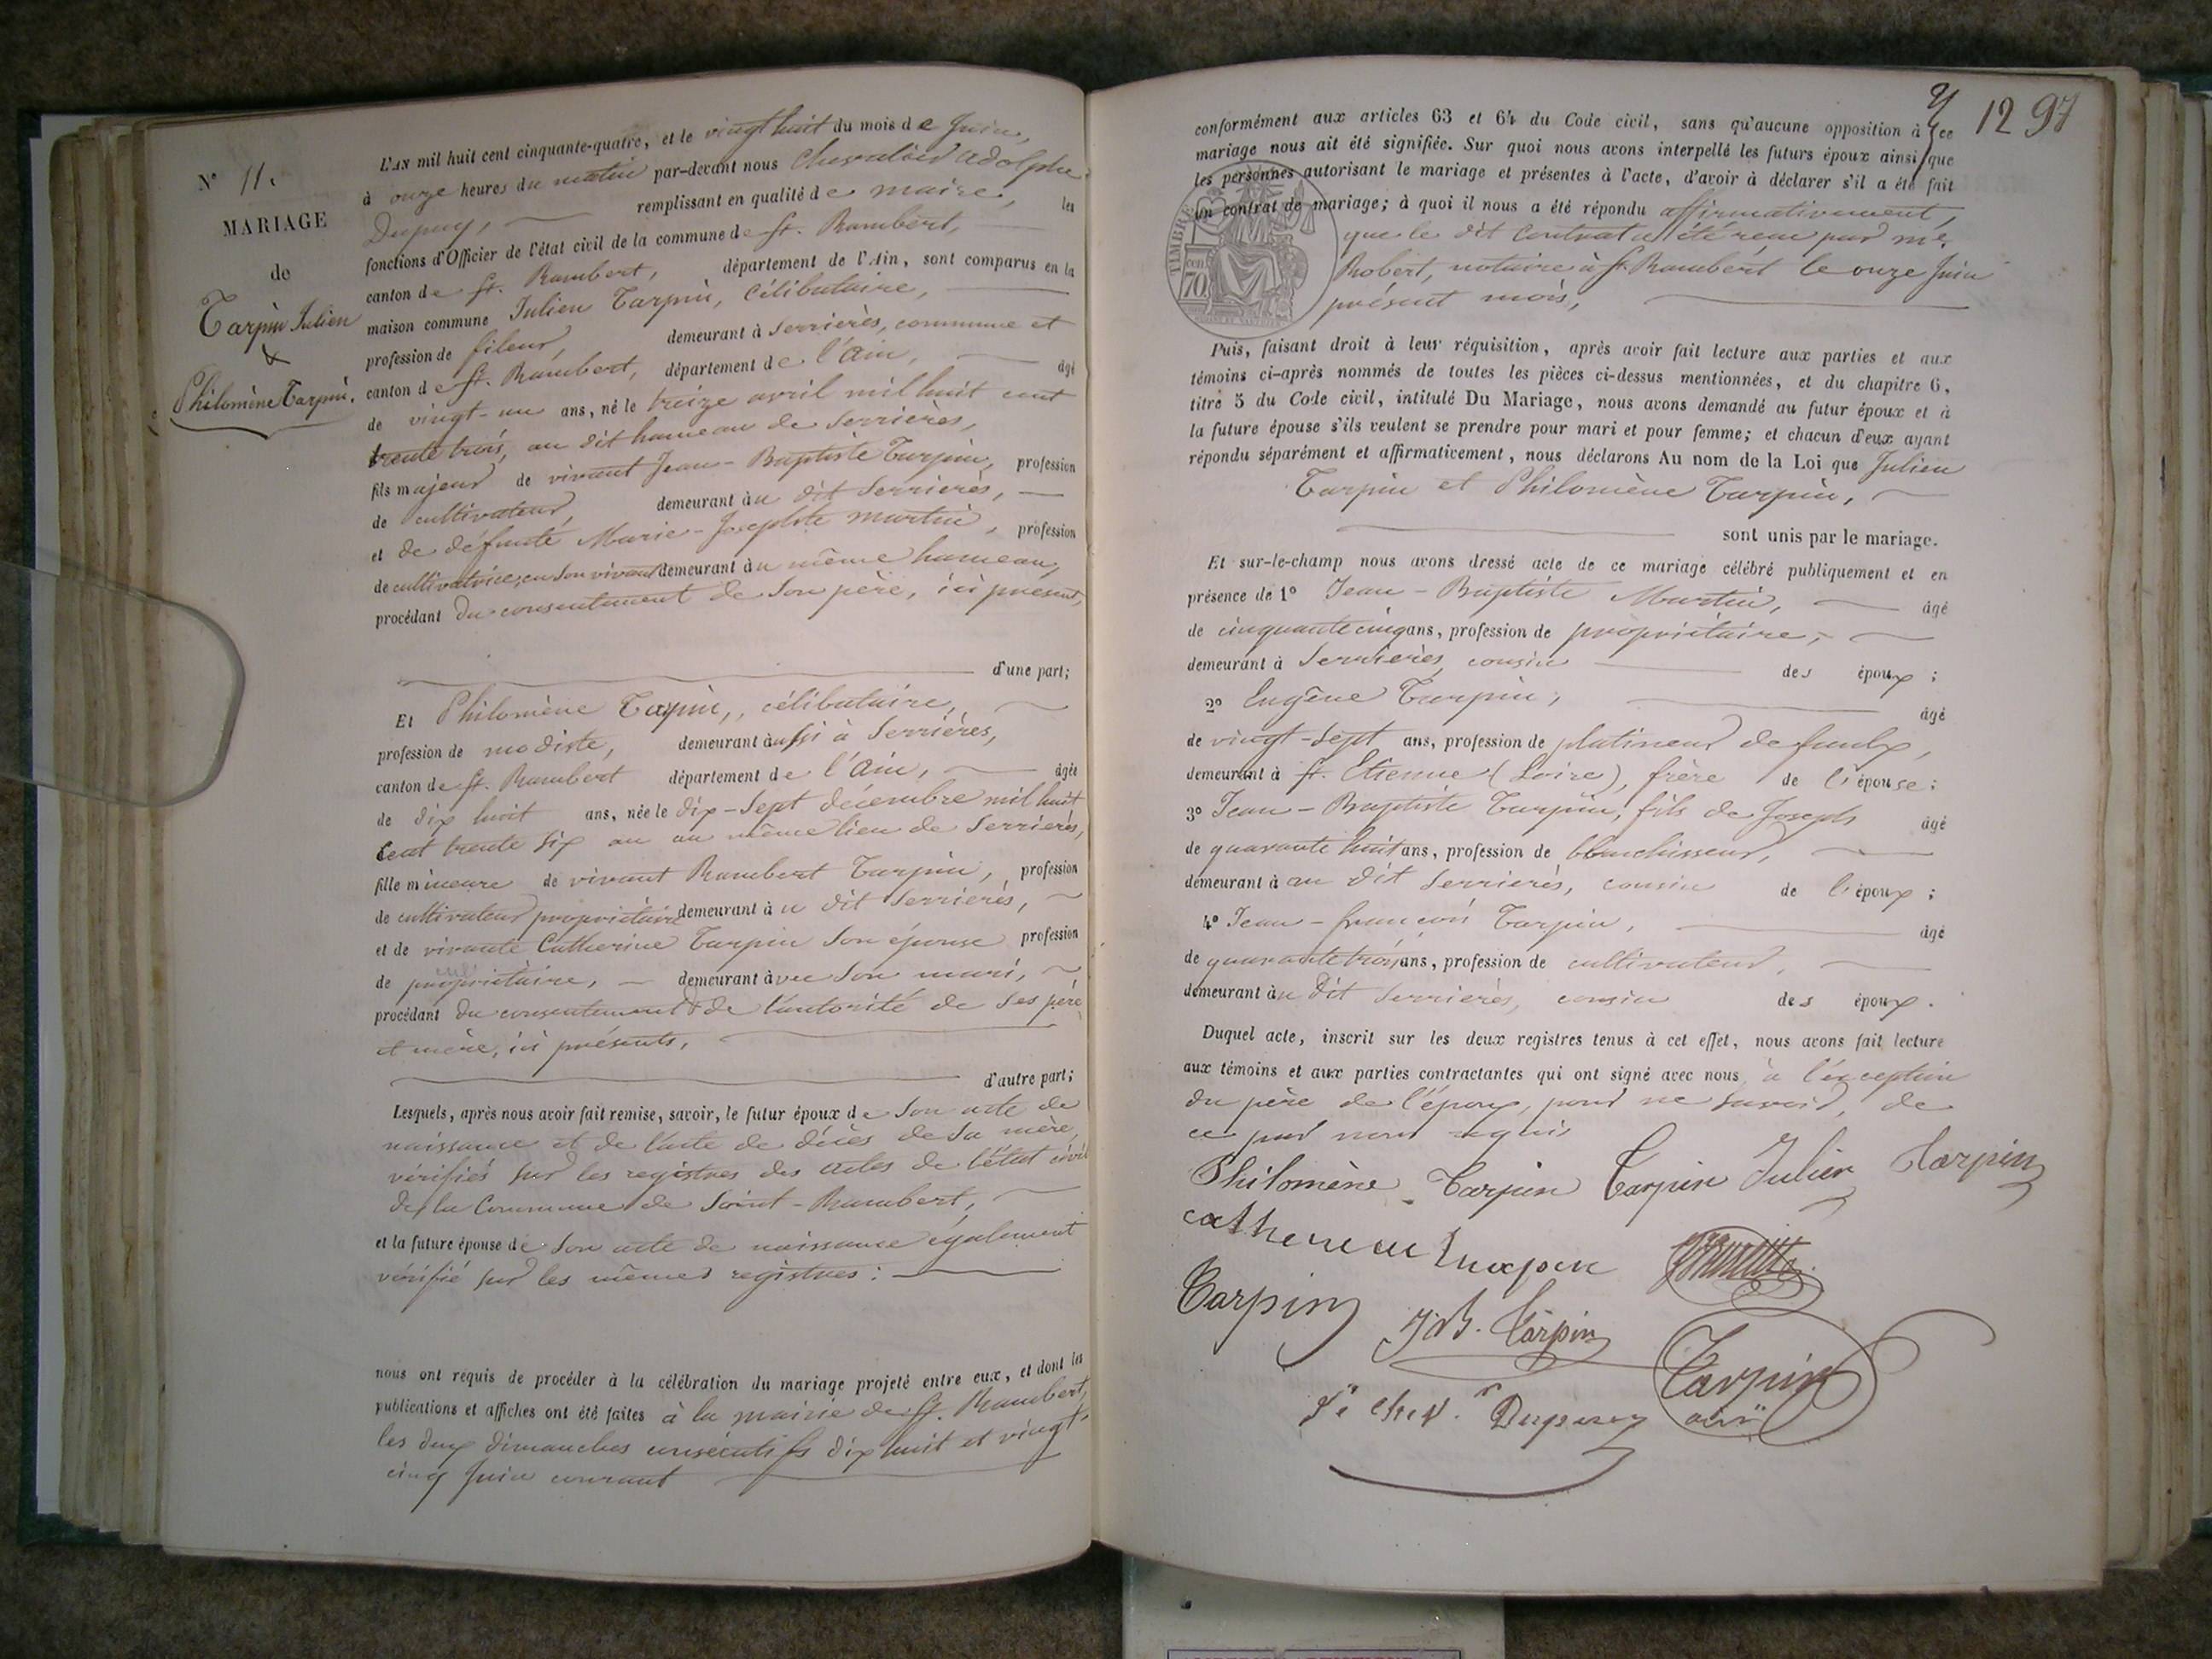 N° 11.
MARIAGE
de
Tarpin Julien
&
Philomène Tarpin.
L'AN mil huit cent cinquante-quatre, et le vingt huit du mois de Juin,
à onze heures du matin par-devant nous Chevalier Adolphe
Dupuy, remplissant en qualité de maire, les
fonctions d'Officier de l'état civil de la commune de St. Rambert,
canton de St. Rambert, département de l'Ain, sont comparus en la
maison commune Julien Tarpin, célibataire,
profession de fileur, demeurant à Serrières, commune et
canton de St. Rambert, département de l'Ain, âgé
de vingt-un ans, né le treize avril mil huit cent
trente trois, au dit hameau de Serrières,
fils majeur de vivant Jean-Baptiste Tarpin, profession
de cultivateur, demeurant au dit Serrières,
et de défunte Marie-Josephte Martin, profession
de cultivatrice, en son vivant demeurant au même hameau,
procédant du consentement de son père, ici présent,
d'une part;
Et Philomène Tarpin, célibataire,
profession de modiste, demeurant aussi à Serrières,
canton de St. Rambert département de l'Ain, âgée
de dix huit ans, née le dix-sept décembre mil huit
cent trente six au au même lieu de Serrières,
fille mineure de vivant Rambert Tarpin, profession
de cultivateur propriétaire demeurant au dit Serrières,
et de vivante Catherine Tarpin son épouse profession
de propriétaire, demeurant avec son mari,
procédant du consentement & de l'autorité de ses père
et mère, ici présents,
d'autre part;
Lesquels, après nous avoir fait remise, savoir, le futur époux de son acte de
naissance et de l'acte de décès de sa mère,
vérifiés sur les registres des actes de l'état civil
de la Commune de Saint-Rambert,
et la future épouse de son acte de naissance également
vérifié sur les mêmes registres:
nous ont requis de procéder à la célébration du mariage projeté entre eux, et dont les
publications et affiches ont été faites à la mairie de St. Rambert,
les deux dimanches consécutifs dix huit et vingt
cinq Juin courant
12 97
conformément aux articles 63 et 64 du Code civil, sans qu'aucune opposition à ce
mariage nous ait été signifiée. Sur quoi nous avons interpellé les futurs époux ainsi que
les personnes autorisant le mariage et présentes à l'acte, d'avoir à déclarer s'il a été fait
un contrat de mariage; à quoi il nous a été répondu affirmativement,
que le dit contrat a été reçu par Me.
Robert, notaire à St. Rambert le onze Juin
présent mois,
TIMBRE
cen
70
Puis, faisant droit à leur réquisition, après avoir fait lecture aux parties et aux
témoins ci-après nommés de toutes les pièces ci-dessus mentionnées, et du chapitre 6,
titre 5 du Code civil, intitulé Du Mariage, nous avons demandé au futur époux et à
la future épouse s'ils veulent se prendre pour mari et pour femme; et chacun d'eux ayant
répondu séparément et affirmativement, nous déclarons Au nom de la Loi que Julien
Tarpin et Philomène Tarpin,
sont unis par le mariage.
Et sur-le-champ nous avons dressé acte de ce mariage célébré publiquement et en
présence de 1° Jean-Baptiste Martin, âgé
de cinquante cinq ans, profession de propriétaire,
demeurant à Serrières, cousin des époux;
2° Eugène Tarpin, âgé
de vingt-sept ans, profession de platineur de faulx,
demeurant à St. Etienne (Loire), frère de l'épouse;
3° Jean-Baptiste Tarpin, fils de Joseph âgé
de quarante huit ans, profession de blanchisseur,
demeurant à au dit Serrières, cousin de l'époux;
4° Jean-françois Tarpin, âgé
de quarante trois ans, profession de cultivateur,
demeurant au dit Serrières, cousin des époux.
Duquel acte, inscrit sur les deux registres tenus à cet effet, nous avons fait lecture
aux témoins et aux parties contractantes qui ont signé avec nous, à l'exception
du père de l'époux, pour ne savoir, de
ce par nous requis
Philomène Tarpin Tarpin Julien Tarpin
Tarpin
J.B. Tarpin
Tarpin
Dupuy